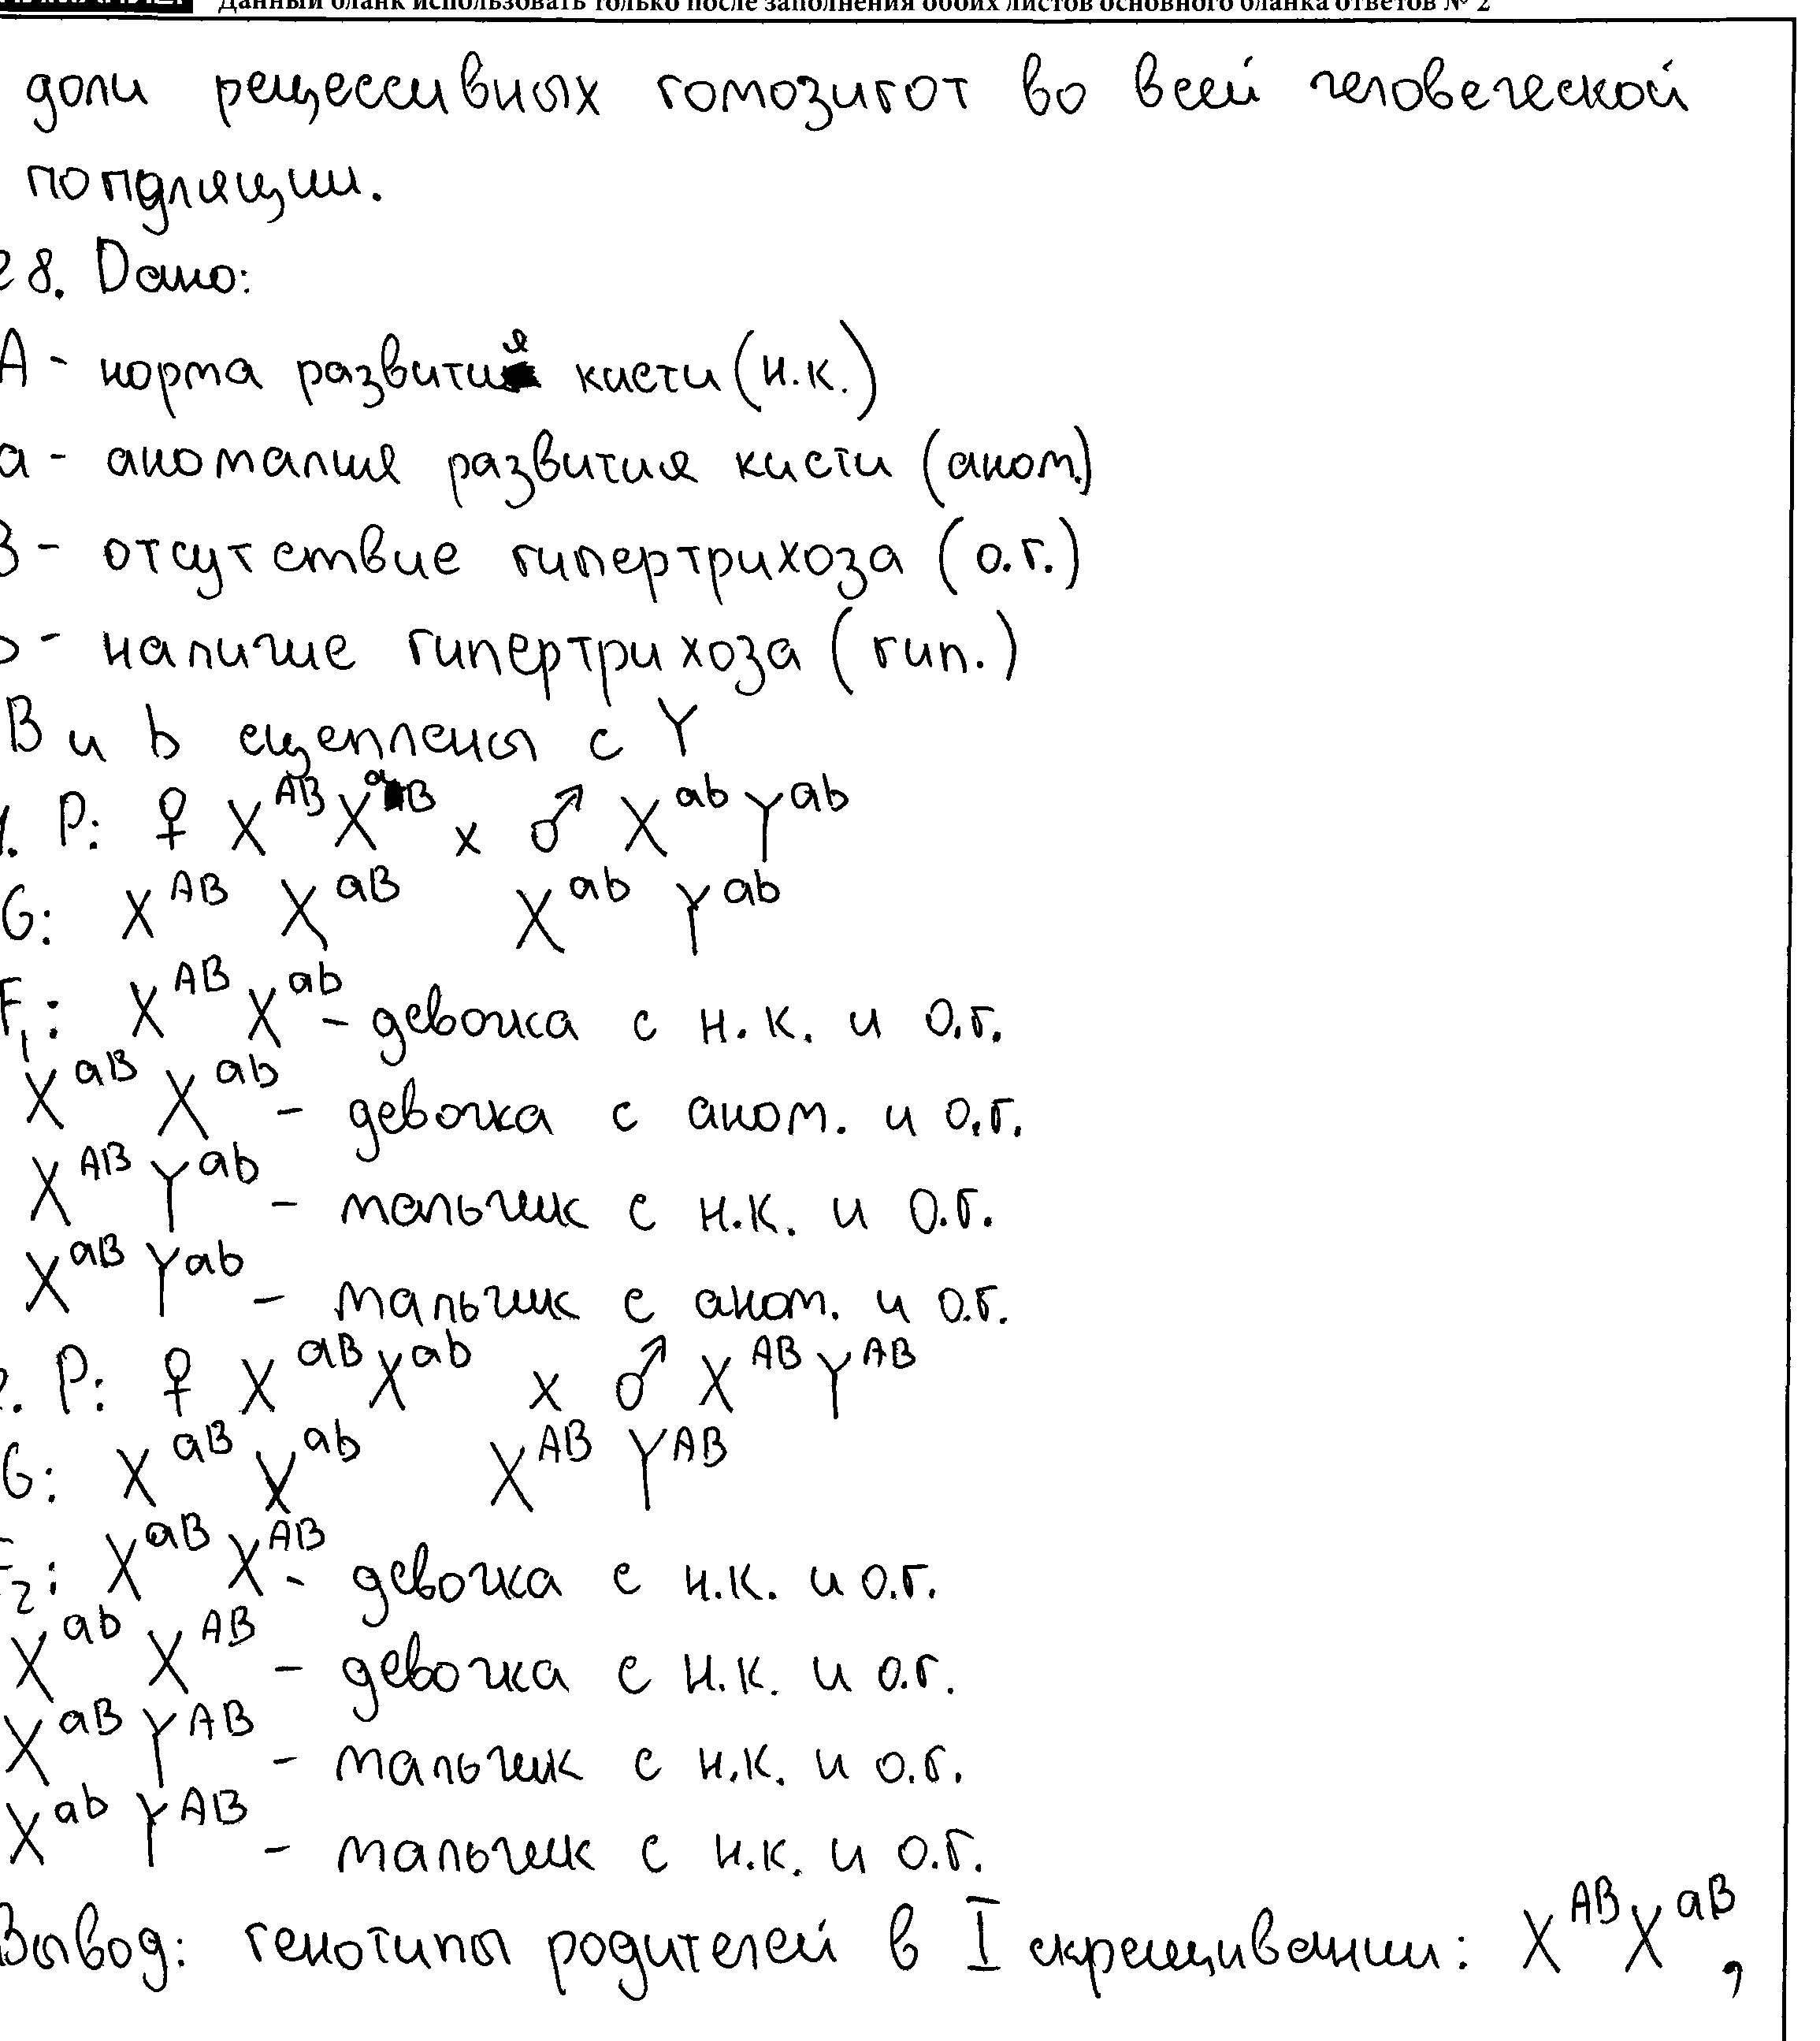 Данный бланк использовать только после заполнения обоих листов основного бланка ответов № 2
доли рецессивных гомозигот во всей человеческой
попдляции.
28. Дано:
A - норма развития кисти (н.к.)
a - аномалия развития кисти (аном.)
B - отсутствие гипертрихоза (о.г.)
b - наличие гипертрихоза (гип.)
B и b сцеплены с Y
1. P: ♀ X^AB X^aB x ♂ X^ab Y^ab
G: X^AB X^aB X^ab Y^ab
F1: X^AB X^ab - девочка с н.к. и о.г.
X^aB X^ab - девочка с аном. и о.г.
X^AB Y^ab - мальчик с н.к. и о.г.
X^aB Y^ab - мальчик с аном. и о.г.
2. P: ♀ X^aB X^ab x ♂ X^AB Y^AB
G: X^aB X^ab X^AB Y^AB
F2: X^aB X^AB - девочка с н.к. и о.г.
X^ab X^AB - девочка с н.к. и о.г.
X^aB Y^AB - мальчик с н.к. и о.г.
X^ab Y^AB - мальчик с н.к. и о.г.
Вывод: генотипы родителей в I скрещивании: X^AB X^aB,